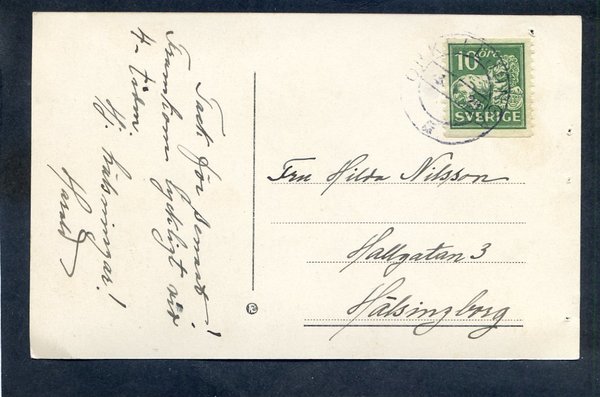 Tack för senast!
Framkom lyckligt vid
4-tiden.
Hj. hälsningar!
Harald
10 öre
SVERIGE
Fru Hilda Nilsson
Hallgatan 3
Hälsingborg